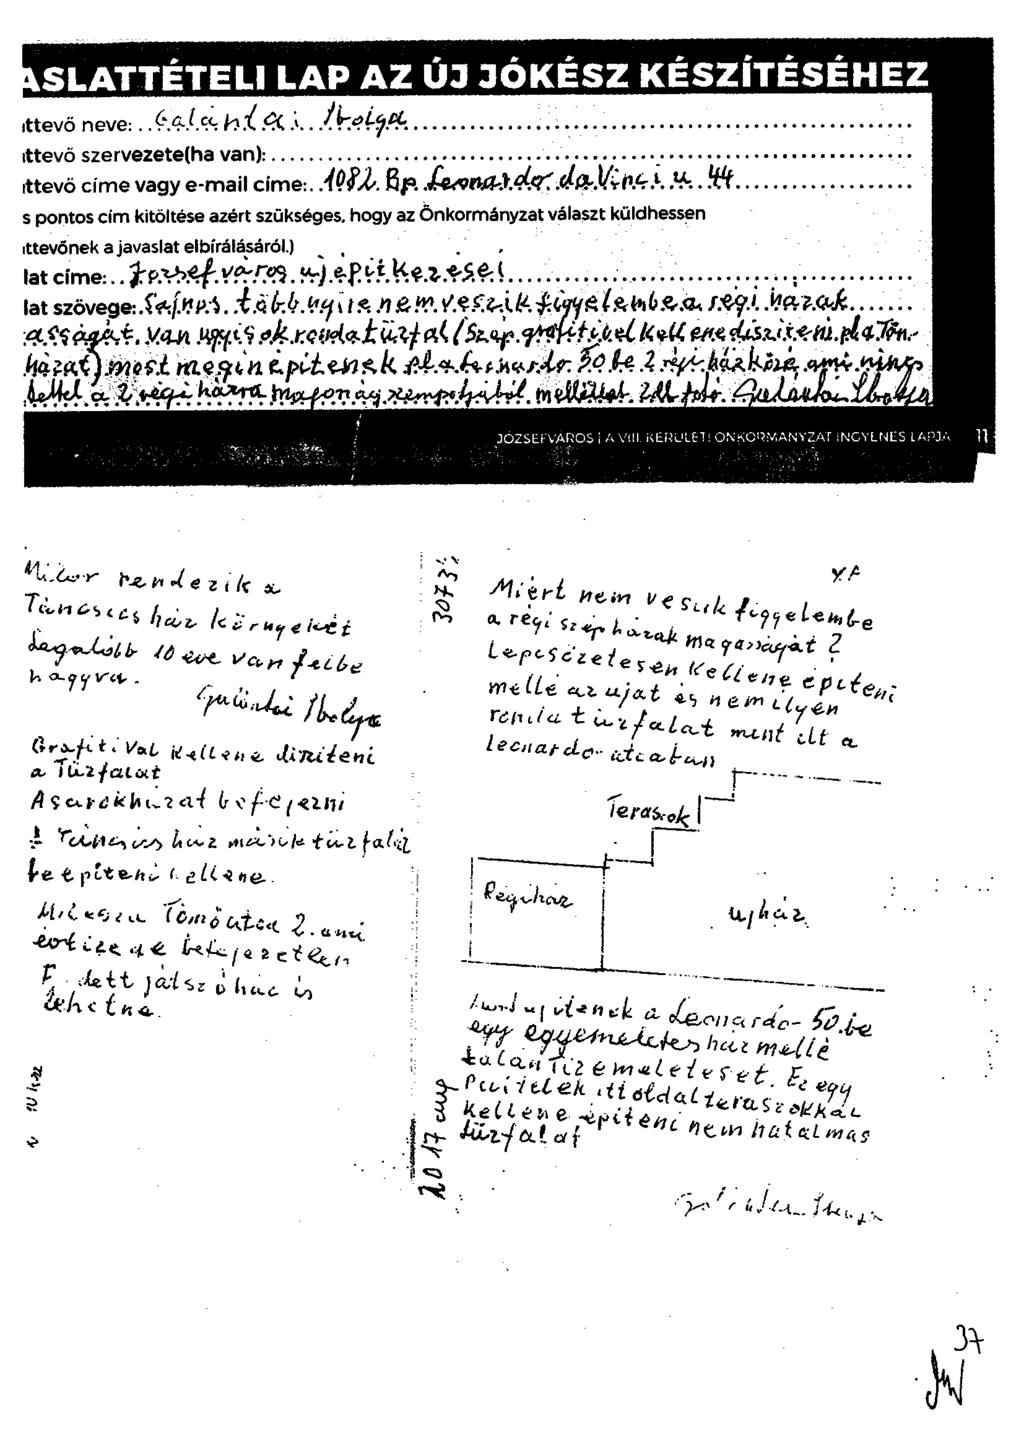 ASLATTÉTELI LAP AZ ÚJ JÓKÉSZ KÉSZÍTÉSÉHEZ
ttevő neve: Galántai Ibolya
ttevő szervezete(ha van):
ttevő címe vagy e-mail címe: 1082 Bp Leonardo da Vinci u 44
s pontos cím kitöltése azért szükséges, hogy az Önkormányzat választ küldhessen
ttevőnek a javaslat elbírálásáról.)
lat címe: Józsefváros uj épitkezései
lat szövege: Sajnos többnyire nem veszik figyelembe a régi házak
asságát. Van ugyis ok ronda tüzfal (Szép grafitivel kellene disziteni pl a Tán-
házat) most megin épitenek pl a Leonardo 50 be 2 régi ház közé ami nincs
a 2 régi házra mellélet 2db fotó. Galántai Ibolya
JÓZSEFVÁROS | A VIII. KERÜLETI ÖNKORMÁNYZAT INGYENES LAPJA 11
Mikor rendezik a
Táncsics ház környékét
Legalább 10 éve van felbe
hagyva.
Galántai Ibolya
Grafitival kellene disziteni
a Tüzfalat
A sarokházat befejezni
Táncsics ház másik tüzfalát
beépiteni kellene.
Tömő utca 2. ami
évtizede befejezetlen
F dett játszóház is
lehetne.
30731
2017 aug
Miért nem veszik figyelembe
a régi szép házak magasságát ?
Lepcsőzetesen kellene épiteni
mellé az ujat és nem ilyen
ronda tüzfalat mint itt a
Leonardo utcában
Teraszok
Régiház
ujház
épitenek a Leonardo 50.be
egy egyemeletes ház mellé
talán Tizemeleteset. Ez egy
itt oldalteraszokkal
kellene épiteni nem hatalmas
tüzfalat
Galántai Ibolya
37